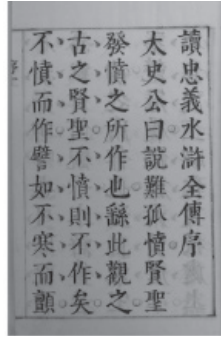 讀忠義水滸全傳序
太史公曰說難孤憤賢聖
發憤之所作也繇此觀之
古之賢聖不憤則不作矣
不憤而作譬如不寒而顫
序一